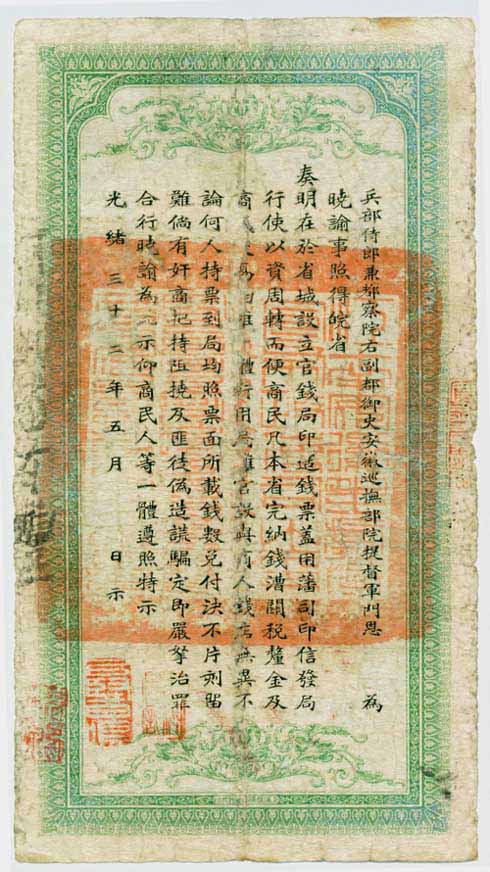 兵部侍郎兼都察院右副都御史安徽巡撫部院提督軍門恩　為
曉諭事照得皖省
奏明在於省城設立官錢局印造錢票蓋用藩司印信發局
行使以資周轉而便商民凡本省完納錢漕關稅釐金及
商易一體行用雖官設與商人錢店無異不
論何人持票到局均照票面所載錢數兌付決不片刻留
難倘有奸商把持阻撓及匪徒偽造誆騙定即嚴拏治罪
合行曉諭為此示仰商民人等一體遵照特示
光緒三十二年五月　日示